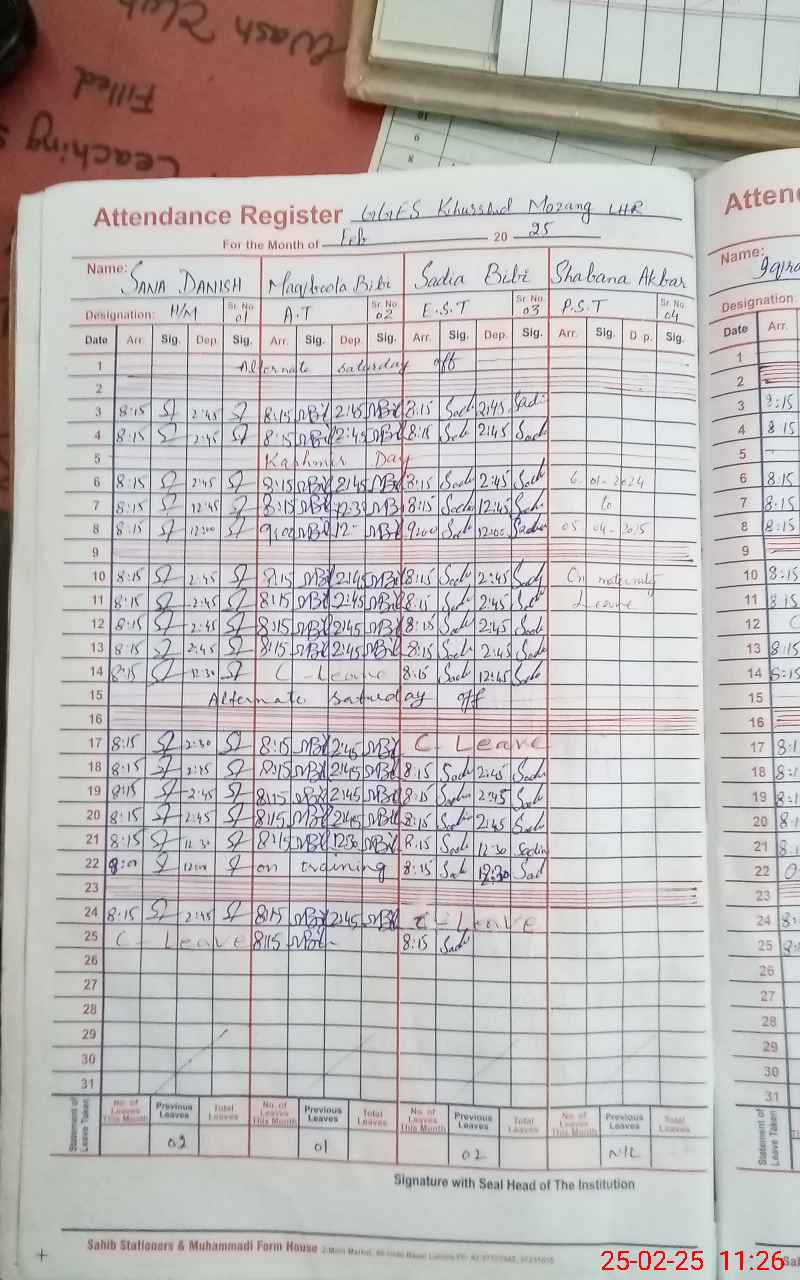 Wash Club
Filled
Teaching
01
6
8
Attendance Register GGES Khurshid Mozang LHR
For the Month of Feb 20 25
Name: SANA DANISH Maqboola Bibi Sadia Bibi Shabana Akbar
Designation: H/M Sr. No. 01 A.T Sr. No. 02 E.S.T Sr. No. 03 P.S.T Sr. No. 04
Date Arr. Sig. Dep. Sig. Arr. Sig. Dep. Sig. Arr. Sig. Dep. Sig. Arr. Sig. D p. Sig.
1 Alternate saturday off
2
3 8:15 2:45 8:15 MBibi 2:45 MBibi 8:15 Sadi 2:45 Sadi
4 8:15 2:45 8:15 MBibi 2:45 MBibi 8:15 Sadi 2:45 Sadi
5 Kashmir Day
6 8:15 2:45 8:15 MBibi 2:45 MBibi 8:15 Sadi 2:45 Sadi 6-01-2024
7 8:15 12:45 8:15 MBibi 12:30 MBibi 8:15 Sadi 12:45 Sadi to
8 8:15 12:00 9:00 MBibi 12- MBibi 9:00 Sadi 12:00 Sadia 05-04-2025
9
10 8:15 2:45 8:15 MBibi 2:45 MBibi 8:15 Sadi 2:45 Sadi On maternity
11 8:15 2:45 8:15 MBibi 2:45 MBibi 8:15 Sadi 2:45 Sadi Leave
12 8:15 2:45 8:15 MBibi 2:45 MBibi 8:15 Sadi 2:45 Sadi
13 8:15 2:45 8:15 MBibi 2:45 MBibi 8:15 Sadi 2:45 Sadi
14 8:15 12:30 C-Leave 8:15 Sadi 12:45 Sadi
15 Alternate saturday off
16
17 8:15 2:30 8:15 MBibi 2:45 MBibi C-Leave
18 8:15 2:45 8:15 MBibi 2:45 MBibi 8:15 Sadi 2:45 Sadi
19 8:15 2:45 8:15 MBibi 2:45 MBibi 8:15 Sadi 2:45 Sadi
20 8:15 2:45 8:15 MBibi 2:45 MBibi 8:15 Sadi 2:45 Sadi
21 8:15 12:30 8:15 MBibi 12:30 MBibi 8:15 Sadi 12:30 Sadia
22 9:00 12:00 on training 8:15 Sadi 12:30 Sadi
23
24 8:15 2:45 8:15 MBibi 2:45 MBibi C-Leave
25 C-Leave 8:15 MBibi 8:15 Sadi
26
27
28
29
30
31
Statement of Leave Taken
No. of Leaves This Month Previous Leaves Total Leaves No. of Leaves This Month Previous Leaves Total Leaves No. of Leaves This Month Previous Leaves Total Leaves No. of Leaves This Month Previous Leaves Total Leaves
02 01 02 NIL
Signature with Seal Head of The Institution
Sahib Stationers & Muhammadi Form House
Atten
Name: Iqra
Designation:
Date Arr.
1
2
3 8:15
4 8:15
5
6 8:15
7 8:15
8 8:15
9
10 8:15
11 8:15
12 C
13 8:15
14 8:15
15
16
17 8:1
18 8:1
19 8:1
20 8:1
21 8:1
22
23
24 8:
25 8:
26
27
28
29
30
31
Statement of Leave Taken
25-02-25 11:26